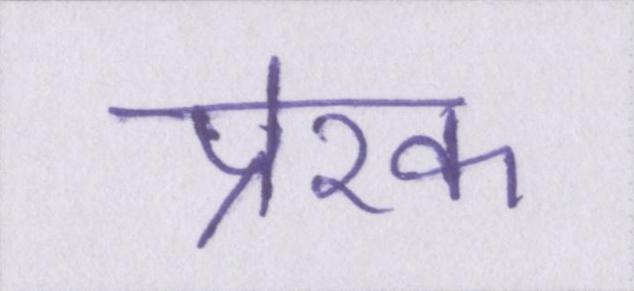 प्रेरक